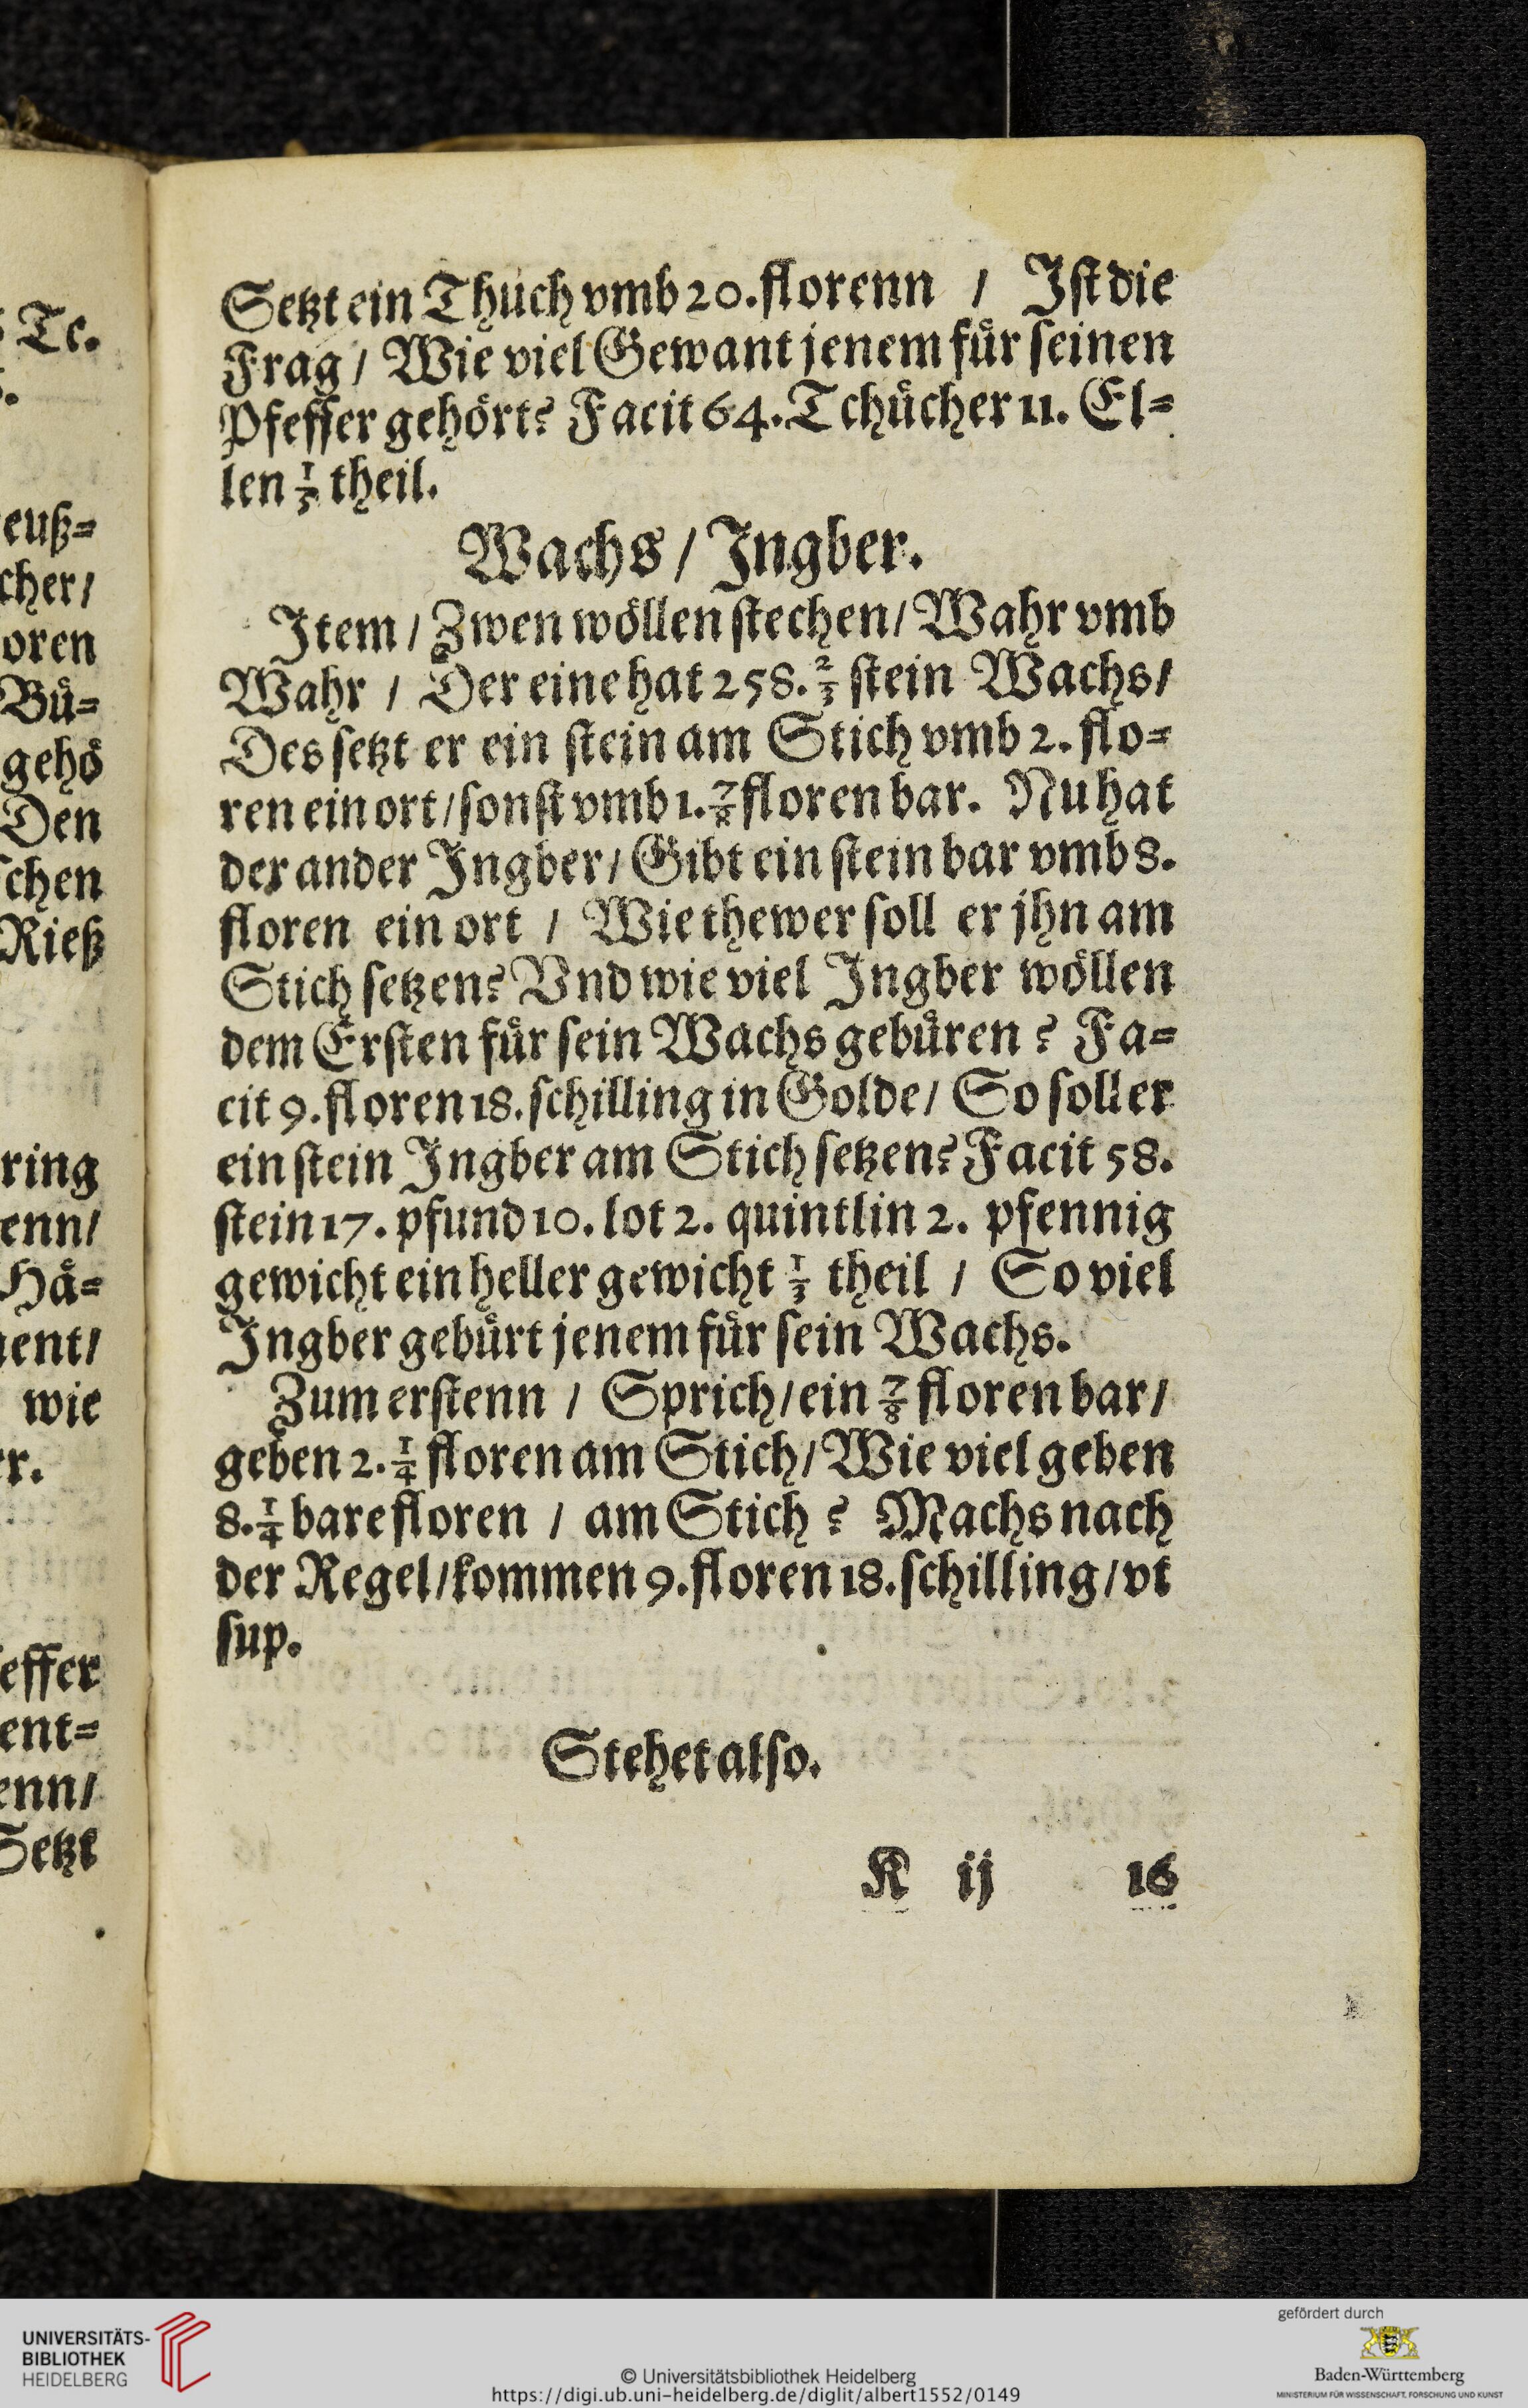 Setzt ein Thuch vmb 20. florenn / Ist die
Frag / Wie viel Gewant jenem für seinen
Pfeffer gehört? Facit 64. Tchücher 11. El=
len 1/5 theil.
Wachs / Ingber.
Item / Zwen wöllen stechen / Wahr vmb
Wahr / Der eine hat 258. 2/3 stein Wachs /
Des setzt er ein stein am Stich vmb 2. flo=
ren ein ort / sonst vmb 1. 7/8 floren bar. Nu hat
der ander Ingber / Gibt ein stein bar vmb 8.
floren ein ort / Wie thewer soll er jhn am
Stich setzen? Vnd wie viel Ingber wöllen
dem Ersten für sein Wachs gebüren? Fa=
cit 9. floren 18. schilling in Golde / So soll er
ein stein Ingber am Stich setzen? Facit 58.
stein 17. pfund 10. lot 2. quintlin 2. pfennig
gewicht ein heller gewicht 1/3 theil / So viel
Ingber gebürt jenem für sein Wachs.
Zum erstenn / Sprich / ein 7/8 floren bar /
geben 2. 1/4 floren am Stich / Wie viel geben
8. 1/4 bare floren / am Stich? Machs nach
der Regel / kommen 9. floren 18. schilling / vt
sup.
Stehet also.
K ij 16
Tc.
euß=
cher /
oren
Bü=
gehö
Den
schen
Rieß
ring
enn /
Hä=
ent /
wie
er.
effer
ent=
enn /
Setzt
UNIVERSITÄTS-
BIBLIOTHEK
HEIDELBERG
© Universitätsbibliothek Heidelberg
https://digi.ub.uni-heidelberg.de/diglit/albert1552/0149
gefördert durch
Baden-Württemberg
MINISTERIUM FÜR WISSENSCHAFT, FORSCHUNG UND KUNST